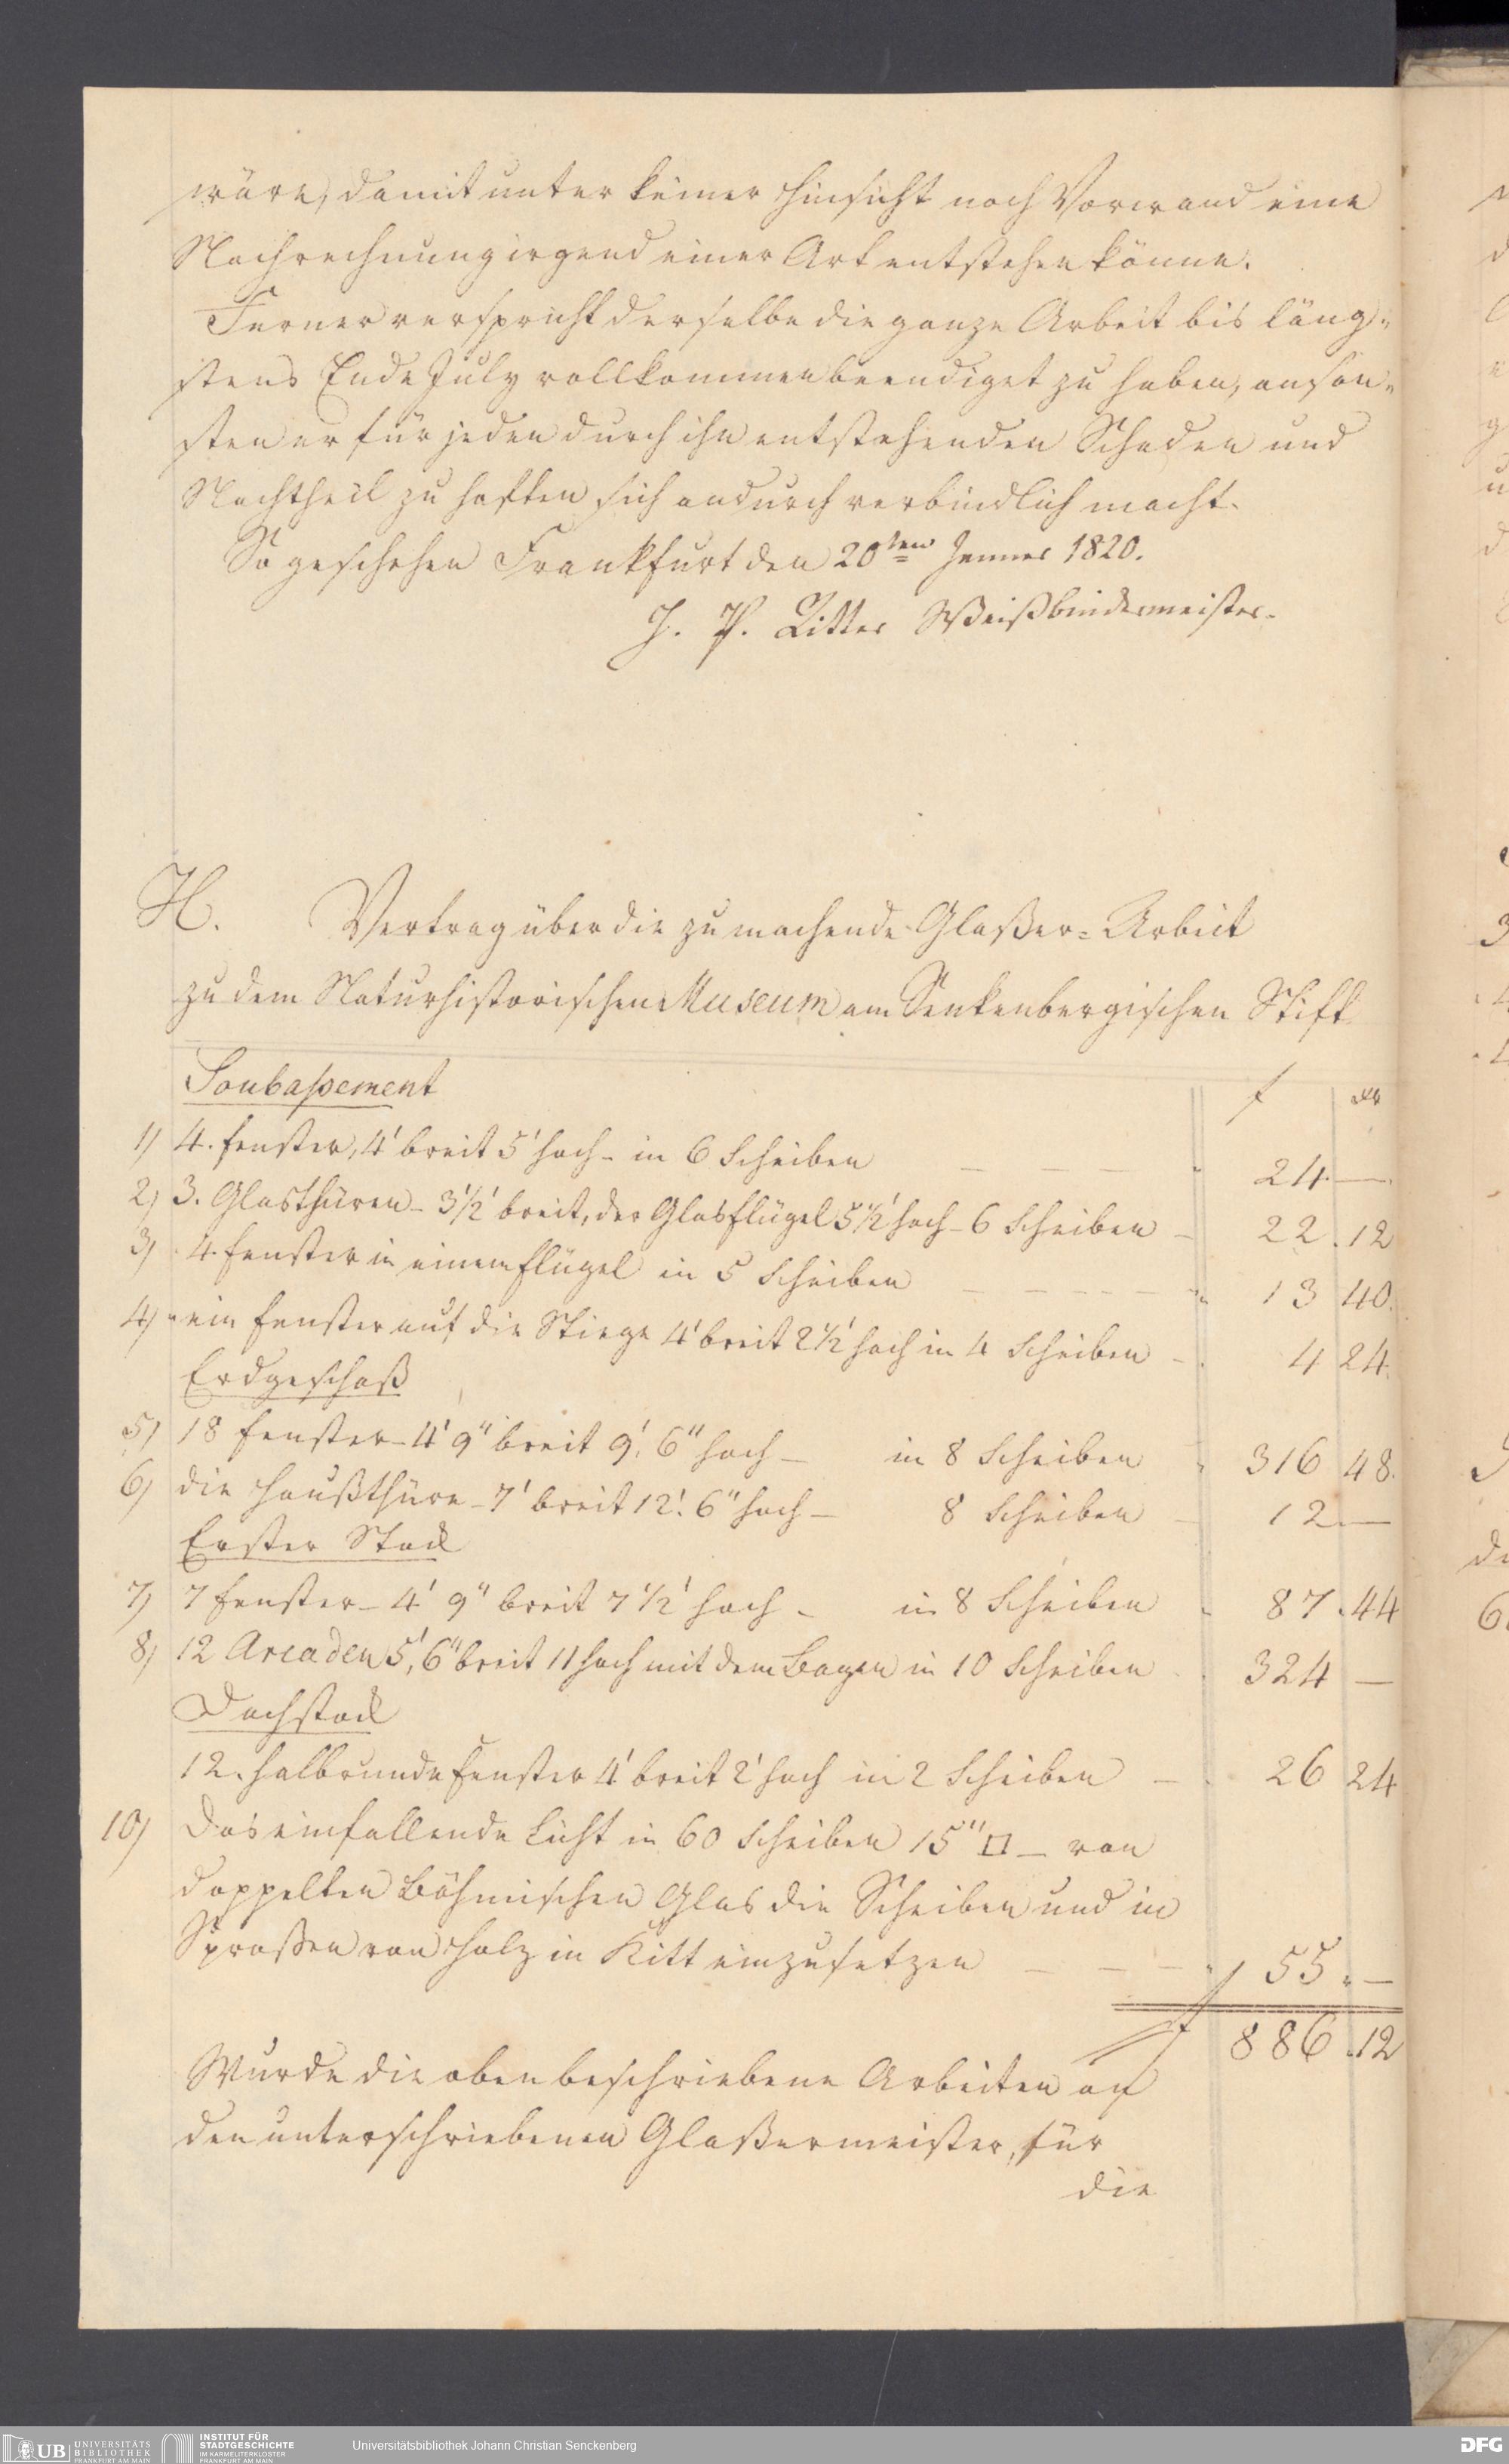 wäre, damit unter keiner Hinsicht noch Vorwand eine
Nachrechnung irgend einer Art entstehen könne.
Ferner verspricht derselbe die ganze Arbeit bis läng-
stens Ende July vollkommen beendiget zu haben, anson-
sten er für jeden durch ihn entstehenden Schaden und
Nachtheil zu haften sich andurch verbindlich macht.
So geschehen Frankfurt den 20ten Jenner 1820.
J. P. Ritter Weißbindermeister.
H. Vertrag über die zu machende Glaßer-Arbeit
zu dem Naturhistorischen Museum am Senkenbergischen Stift
Soubaßement f xr
1) 4. Fenster, 4' breit 5' hoch - in 6 Scheiben 24. —
2) 3. Glasthüren - 3 1/2' breit, der Glasflügel 5 1/2' hoch - 6 Scheiben - 22. 12
3) 4. Fenster in einem Flügel in 5 Scheiben 13 40.
4) ein Fenster auf die Stiege 4' breit 2 1/2' hoch in 4 Scheiben - 4 24.
Erdgeschoß
5) 18 Fenster - 4' 9" breit 9'. 6" hoch - in 8 Scheiben 316 48.
6) die Haußthüre - 7' breit 12'. 6" hoch - 8 Scheiben - 12. —
Erster Stock
7) 7 Fenster - 4' 9" breit 7 1/2' hoch - in 8 Scheiben 87. 44
8) 12 Arcaden 5', 6" breit 11 hoch mit dem Bogen in 10 Scheiben 324 —
Dachstock
12. halbrunde Fenster 4' breit 2' hoch in 2 Scheiben - 26 24
10) Das einfallende Licht in 60 Scheiben 15" □ - von
doppelten Böhmischen Glas die Scheiben und in
Sproßen von Holz in Kitt einzusetzen 55. —
f 886. 12
Wurde die oben beschriebene Arbeiten an
den unterschriebenen Glaßermeister, für
die
UB UNIVERSITÄTS
BIBLIOTHEK
FRANKFURT AM MAIN
INSTITUT FÜR
STADTGESCHICHTE
IM KARMELITERKLOSTER
FRANKFURT AM MAIN
Universitätsbibliothek Johann Christian Senckenberg
DFG